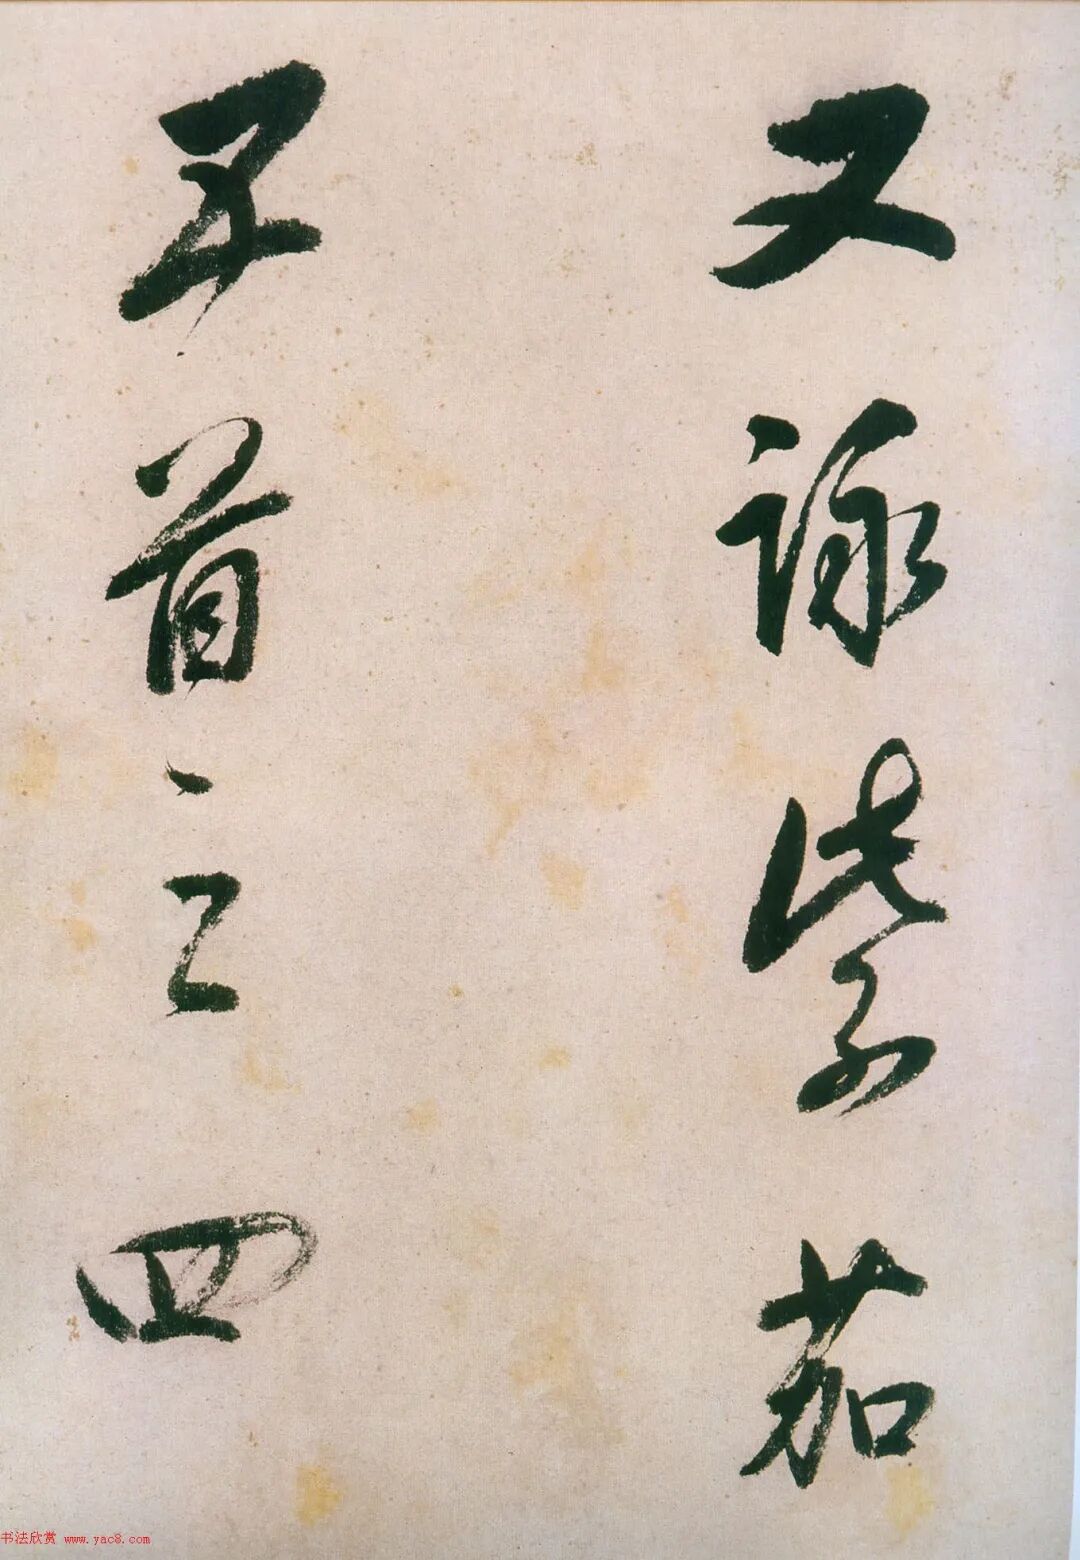 又詠紫茄
子首之四
书法欣赏 www.yac8.com